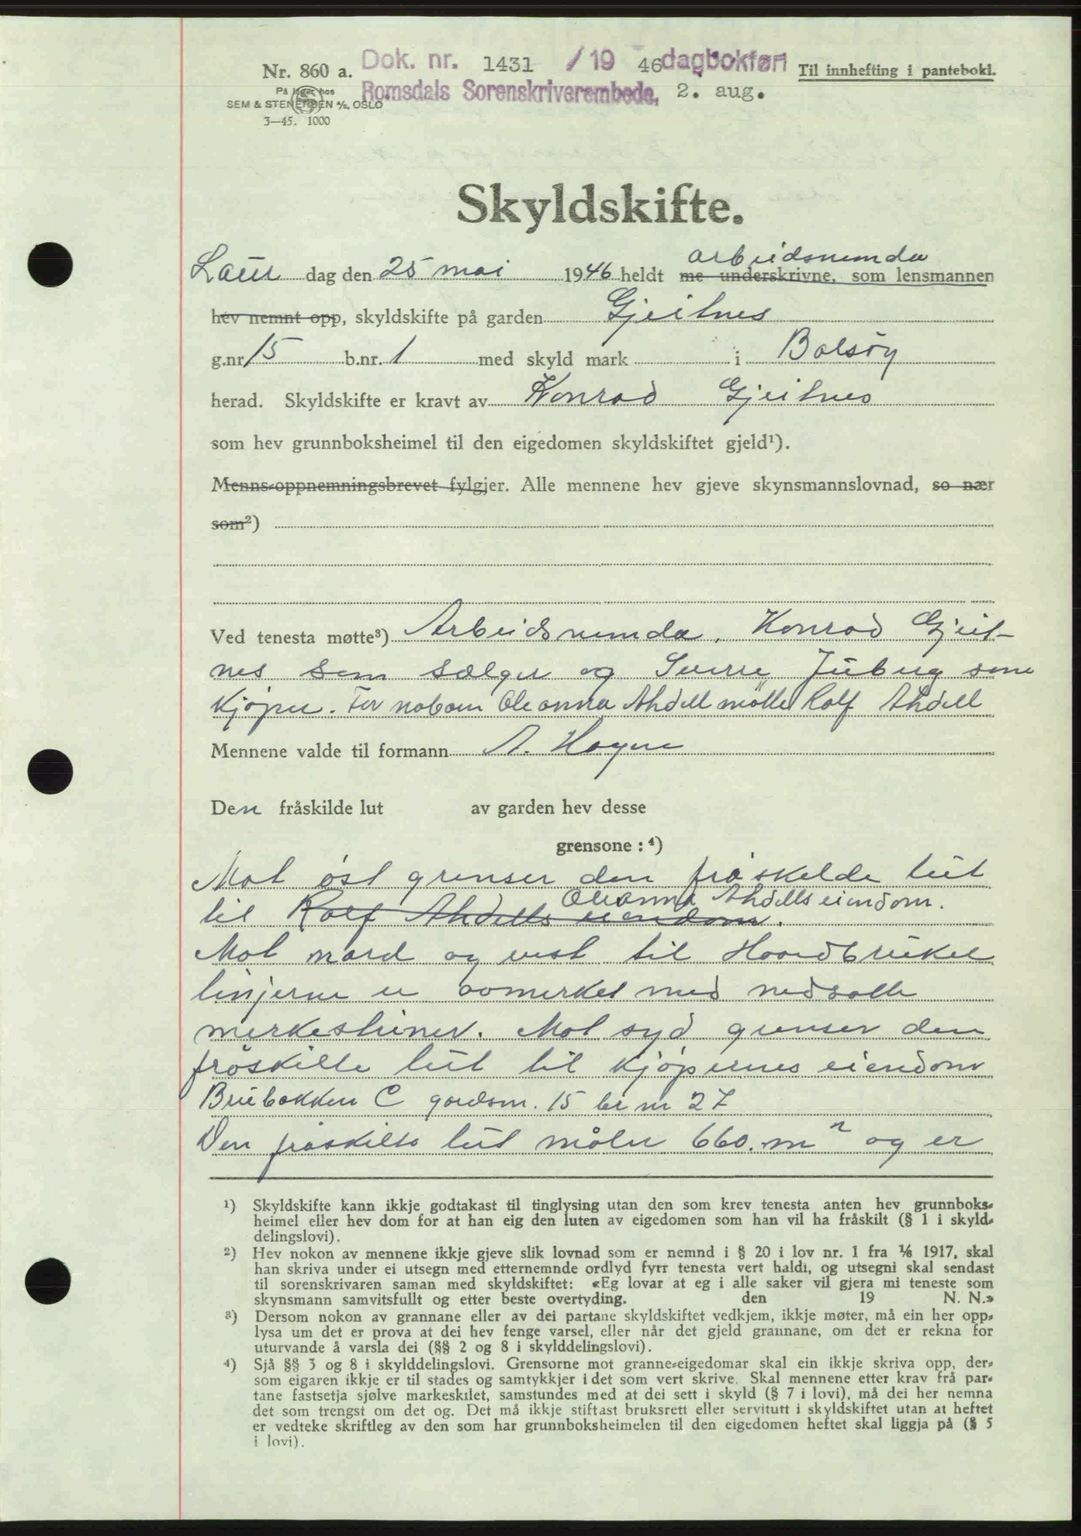 Nr. 860 a. Dok. nr. 1431 /19 46 dagbokført Til innhefting i panteboki.
På lager hos Romsdals Sorenskriverembede, 2. aug.
SEM & STENERSEN A/S, OSLO
3—45. 1000
Skyldskifte.
arbeidsnemda
Laur dag den 25 mai 1946 heldt me underskrivne, som lensmannen
hev nemnt opp, skyldskifte på garden Gjeitnes
g.nr. 15 b.nr. 1 med skyld mark i Bolsøy
herad. Skyldskifte er kravt av Konrad Gjeitnes
som hev grunnboksheimel til den eigedomen skyldskiftet gjeld¹).
Menns-oppnemningsbrevet fylgjer. Alle mennene hev gjeve skynsmannslovnad, so nær
som²)
Ved tenesta møtte³) Arbeidsnemda, Konrad Gjeit-
nes som sælger og Sverre Juberg som
kjøper. For naboen Oleanna Ahdell møtte Rolf Ahdell
Mennene valde til formann A. Hagen
Den fråskilde lut av garden hev desse
grensone: ⁴)
Mot øst grenser den fråskilde lut
Oleanna Ahdells eiendom.
til Rolf Ahdells eiendom.
Mot nord og vest til Hovedbruket
linjerne er avmerket med nedsatte
merkesteiner. Mot syd grenser den
fråskilte lut til kjøpernes eiendom
Brubakken C gardsnr. 15 br nr 27
Den fråskilte lut måler 660 m² og er
¹) Skyldskifte kann ikkje godtakast til tinglysing utan den som krev tenesta anten hev grunnboks-
heimel eller hev dom for at han eig den luten av eigedomen som han vil ha fråskilt (§ 1 i skyld-
delingslovi).
²) Hev nokon av mennene ikkje gjeve slik lovnad som er nemnd i § 20 i lov nr. 1 fra 1/6 1917, skal
han skriva under ei utsegn med etternemnde ordlyd fyrr tenesta vert haldi, og utsegni skal sendast
til sorenskrivaren saman med skyldskiftet: «Eg lovar at eg i alle saker vil gjera mi teneste som
skynsmann samvitsfullt og etter beste overtyding. den 19 N. N.»
³) Dersom nokon av grannane eller av dei partane skyldskiftet vedkjem, ikkje møter, må ein her opp-
lysa um det er prova at dei hev fenge varsel, eller når det gjeld grannane, om det er rekna for
uturvande å varsla dei (§§ 2 og 8 i skylddelingslovi).
⁴) Sjå §§ 3 og 8 i skylddelingslovi. Grensorne mot granne-eigedomar skal ein ikkje skriva opp, der-
som eigaren ikkje er til stades og samtykkjer i det som vert skrive. Skal mennene etter krav frå par-
tane fastsetja sjølve markeskilet, samstundes med at dei sett i skyld (§ 7 i lovi), må dei her nemna
det som trengst om det og. Det må ikkje stiftast bruksrett eller servitutt i skyldskiftet utan at heftet
er vedteke skriftleg av den som har grunnboksheimelen til den eigedomen heftet skal liggja på (§ 5
i lovi).